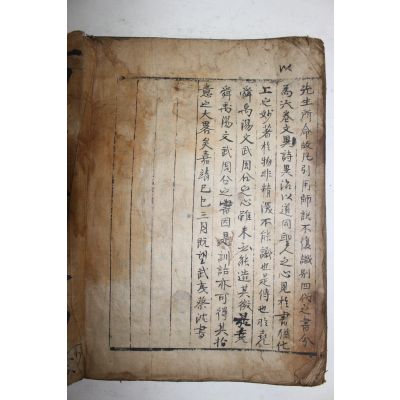 先生所命故凡引用師說不復識別四代之書分
為六卷文異詩異治以道同聖人之心見於書猶化
上之妙著於物非精深不能識也是傳也於堯
舜禹湯文武周公之心雖未必能造其微於堯
舜禹湯文武周公之書因是訓詁亦可得其指
意之大畧矣嘉靖己巳三月既望武夷蔡沈書